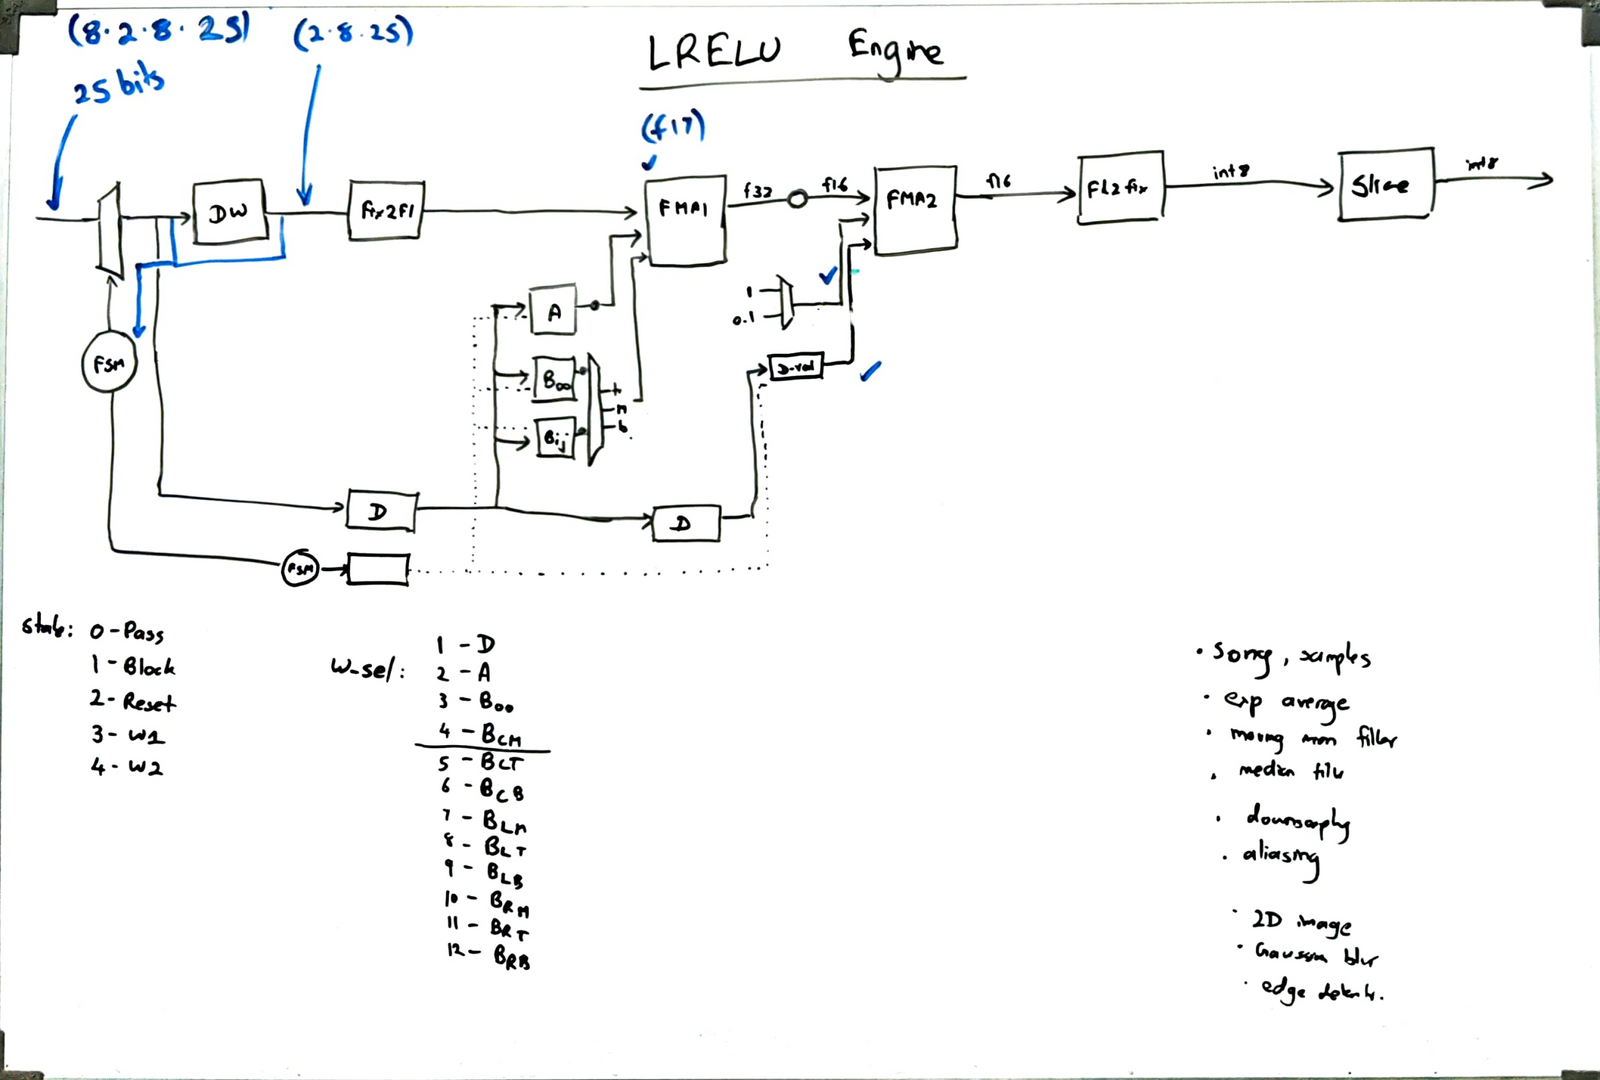 (8.2.8.25)
(2.8.25)
25 bits
LRELU Engine
(f17)
DW
Fix2Fl
FMA1
f32
f16
FMA2
f16
Fl2fix
int8
Slice
int8
A
1
0.1
FSM
B00
Bij
t
m
b
D-val
D
D
FSM
state:
0-Pass
1-Block
2-Reset
3-W1
4-W2
W-sel:
1-D
2-A
3-B00
4-BCM
5-BCT
6-BCB
7-BLM
8-BLT
9-BLB
10-BRM
11-BRT
12-BRB
• song, samples
• exp average
• moving mean filter
• median filter
• downsampling
• aliasing
• 2D image
• Gaussian blur
• edge